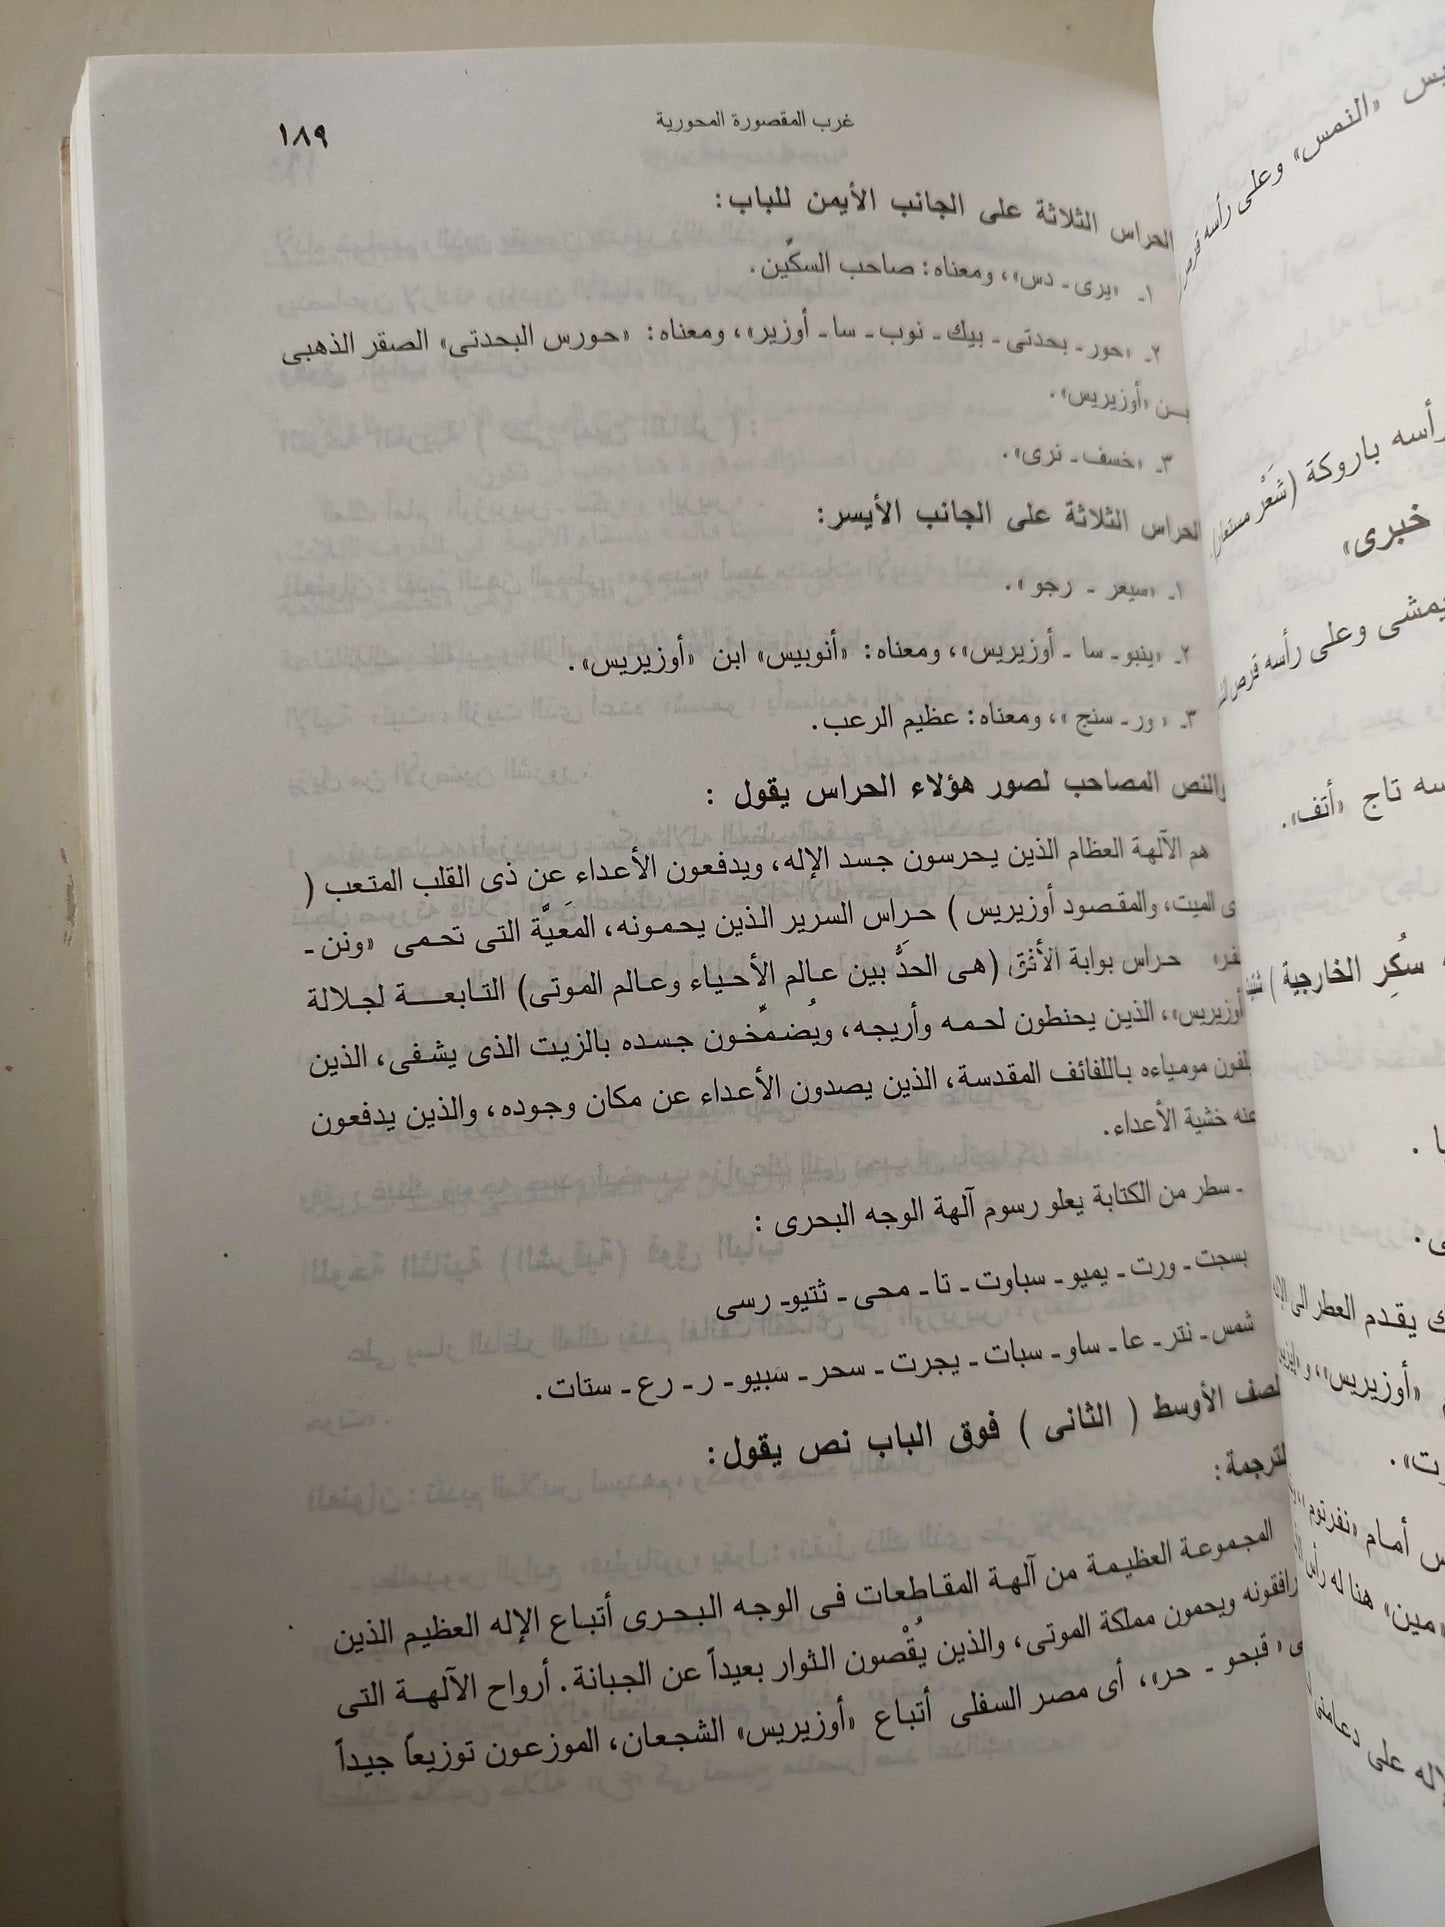 غرب المقصورة المحورية
١٨٩
الحراس الثلاثة على الجانب الأيمن للباب:
١ـ «يرى ـ دس»، ومعناه: صاحب السكِّين.
٢ـ «حور ـ بحدتى ـ بيك ـ نوب ـ سا ـ أوزير»، ومعناه: «حورس البحدتى» الصقر الذهبى
بـن «أوزيريس».
٣ـ «خسف ـ نرى».
الحراس الثلاثة على الجانب الأيسر:
١ـ «سيعر ـ رجو».
٢ـ «ينبو ـ سا ـ أوزيريس»، ومعناه: «أنوبيس» ابن «أوزيريس».
٣ـ « ور ـ سنج »، ومعناه: عظيم الرعب.
والنص المصاحب لصور هؤلاء الحراس يقول :
هم الآلهة العظام الذين يحرسون جسد الإله، ويدفعون الأعداء عن ذى القلب المتعب (
ى الميت، والمقصود أوزيريس ) حراس السرير الذين يحمونه، المَعيَّة التى تحمى «ونن ـ
نفر» حراس بوابة الأفق (هى الحدَّ بين عالم الأحياء وعالم الموتى) التابعـــة لجلالة
أوزيريس»، الذين يحنطون لحمه وأريجه، ويُضمِّخون جسده بالزيت الذى يشفى، الذين
يلفون مومياءه باللفائف المقدسة، الذين يصدون الأعداء عن مكان وجوده، والذين يدفعون
عنه خشية الأعداء.
ـ سطر من الكتابة يعلو رسوم آلهة الوجه البحرى :
بسجت ـ ورت ـ يميو ـ سباوت ـ تا ـ محى ـ ثتيوـ رسى
شمس ـ نتر ـ عا ـ ساو ـ سبات ـ يجرت ـ سحر ـ سَبيو ـ ر ـ رع ـ ستات.
لصف الأوسط ( الثانى ) فوق الباب نص يقول:
لترجمة:
المجموعة العظيمة من آلهة المقاطعات فى الوجه البحرى أتباع الإله العظيم الذين
رافقونه ويحمون مملكة الموتى، والذين يُقْصون الثوار بعيداً عن الجبانة. أرواح الآلهة التى
ى « قبحو ـ حر»، أى مصر السفلى أتباع «أوزيريس» الشجعان، الموزعون توزيعاً جيداً
يس «النمس» وعلى رأسه قرص
رأسه باروكة (شَعْر مستعار).
خبرى»
يمشى وعلى رأسه قرص
سه تاج «أتف».
سُكِر الخارجية )
ك يقدم العطر الى الإله
«أوزيريس»، و«إيزيس
ت».
س أمام «نفرتوم»
«مين» هنا له رأس
لإله على دعامتى